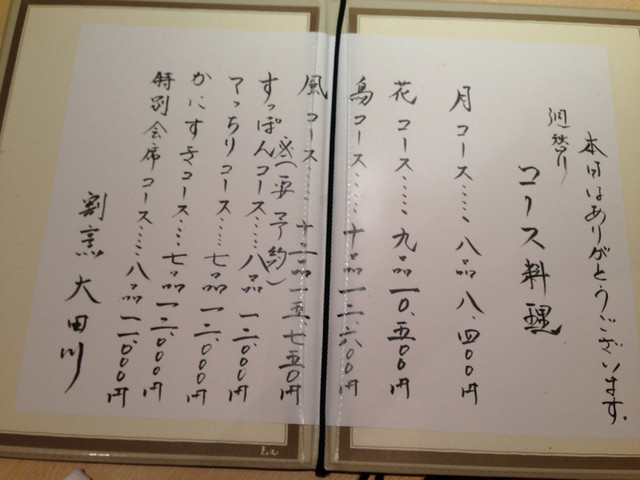 本日はありがとうございます。
週替り
コース料理
月コース……八品 八、四〇〇円
花コース……九品 一〇、五〇〇円
鳥コース……十品 一二、六〇〇円
風コース……十一品 一五、七五〇円
※(要予約)
すっぽんコース……八品 一二、〇〇〇円
てっちりコース……七品 一二、〇〇〇円
かにすきコース……七品 一二、〇〇〇円
特別会席コース……八品 一二、〇〇〇円
割烹 大田川